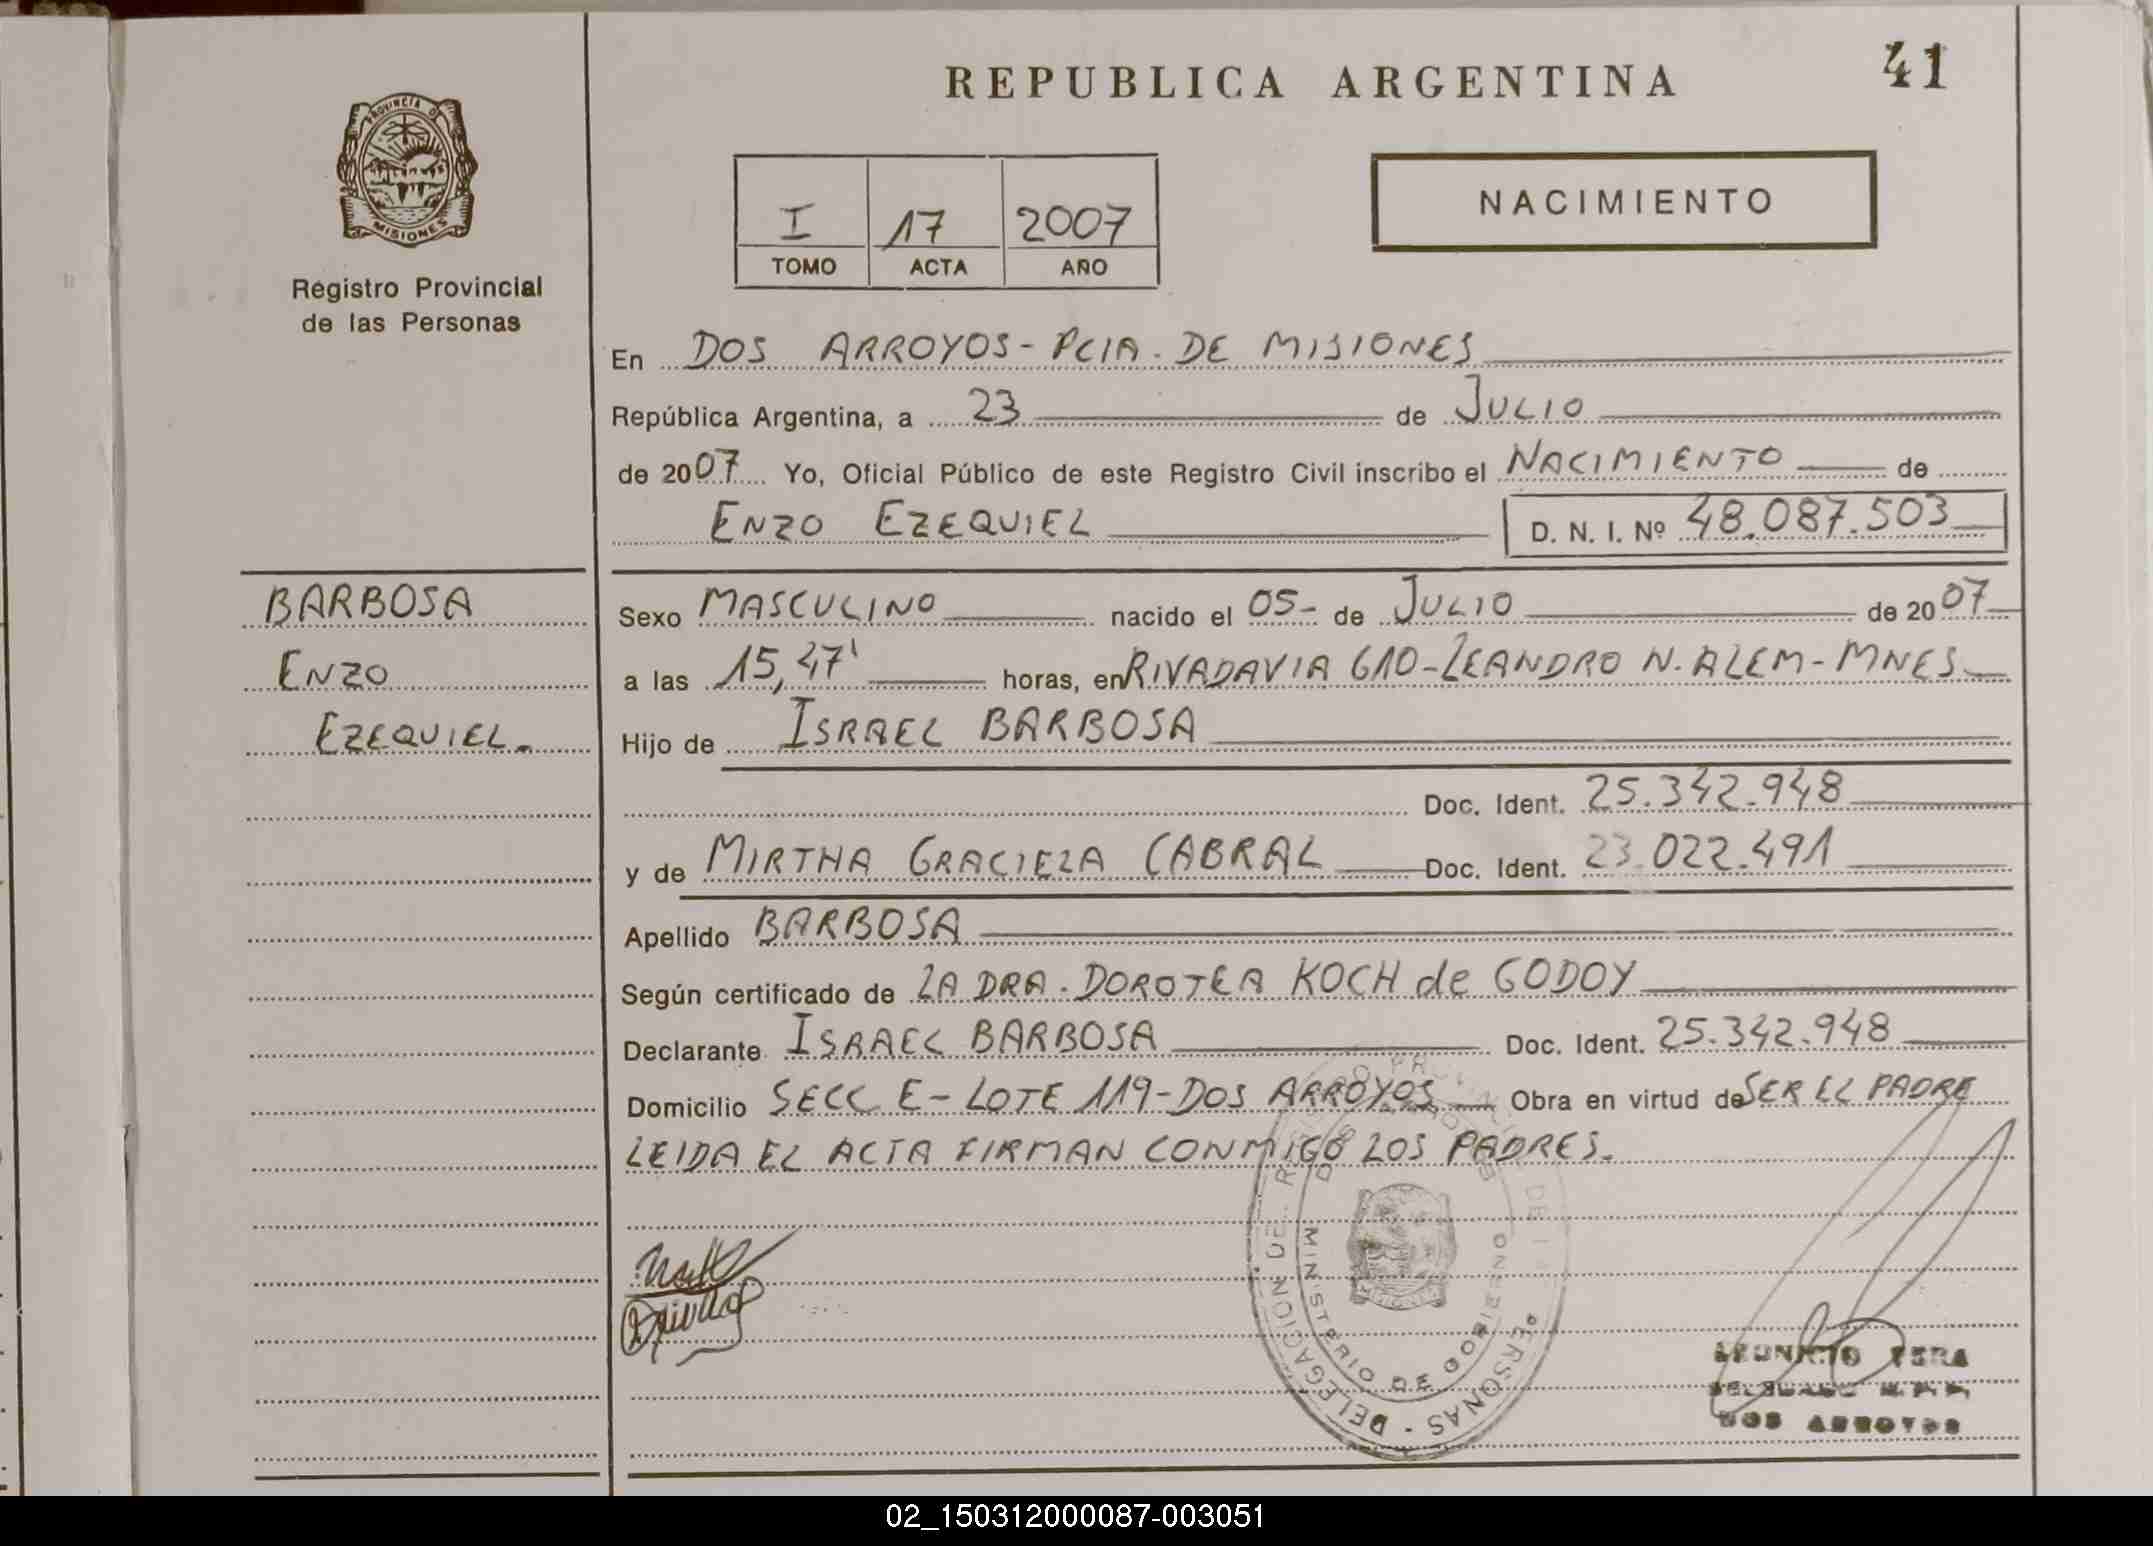 REPUBLICA ARGENTINA
41
PROVINCIA DE
MISIONES
Registro Provincial
de las Personas
I 17 2007
TOMO ACTA AÑO
NACIMIENTO
En DOS ARROYOS - PCIA. DE MISIONES
República Argentina, a 23 de JULIO
de 2007 Yo, Oficial Público de este Registro Civil inscribo el NACIMIENTO de
ENZO EZEQUIEL D. N. I. Nº 48.087.503
BARBOSA
ENZO
EZEQUIEL.
Sexo MASCULINO nacido el 05- de JULIO de 2007
a las 15,47' horas, en RIVADAVIA 610-LEANDRO N. ALEM-MNES
Hijo de ISRAEL BARBOSA
Doc. Ident. 25.342.948
y de MIRTHA GRACIELA CABRAL Doc. Ident. 23.022.491
Apellido BARBOSA
Según certificado de LA DRA. DOROTEA KOCH de GODOY
Declarante ISRAEL BARBOSA Doc. Ident. 25.342.948
Domicilio SECC E- LOTE 119-DOS ARROYOS Obra en virtud de SER EL PADRE
LEIDA EL ACTA FIRMAN CONMIGO LOS PADRES.
MINISTERIO DE GOBIERNO
PERSONAS - DELEGACION DE
VERA
DOS ARROYOS
02_150312000087-003051